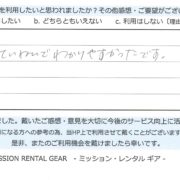 を利用したいと思われましたか？その他感想・ご要望がござい
b. どちらともいえない　c. 利用はしない（理由
ていねいで わかりやすかったです。
ました。戴いたご感想・意見を大切に今後のサービス向上に活
になる方への参考の為、当HP上で利用させて戴くことがございます
是非、またのご利用機会を戴けましたら幸いです。
SSION RENTAL GEAR　- ミッション・レンタル ギア -